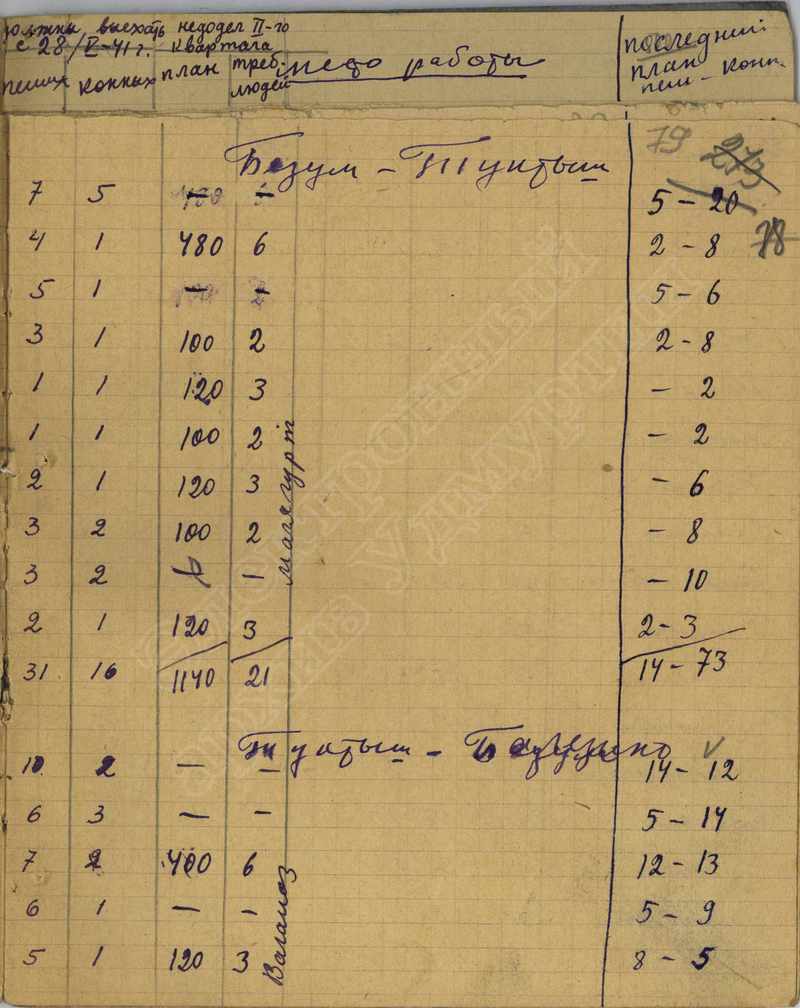 должны выехать недодел II-го
с 28/V-41 г. квартала
пеших конных план треб. людей место работы последний план пеш - конн.
79 273
Безум - Туктыш
7 5 - - 5 - 20
4 1 480 6 2 - 8 78
5 1 - - 5 - 6
3 1 100 2 2 - 8
1 1 120 3 - 2
1 1 100 2 - 2
2 1 120 3 - 6
3 2 100 2 - 8
3 2 - - 10
2 1 120 3 2 - 3
31 16 1140 21 14 - 73
Малягурт
Туктыш - Балезино
10 2 - - 14 - 12
6 3 - - 5 - 14
7 2 400 6 12 - 13
6 1 - - 5 - 9
5 1 120 3 8 - 5
Ваганоз